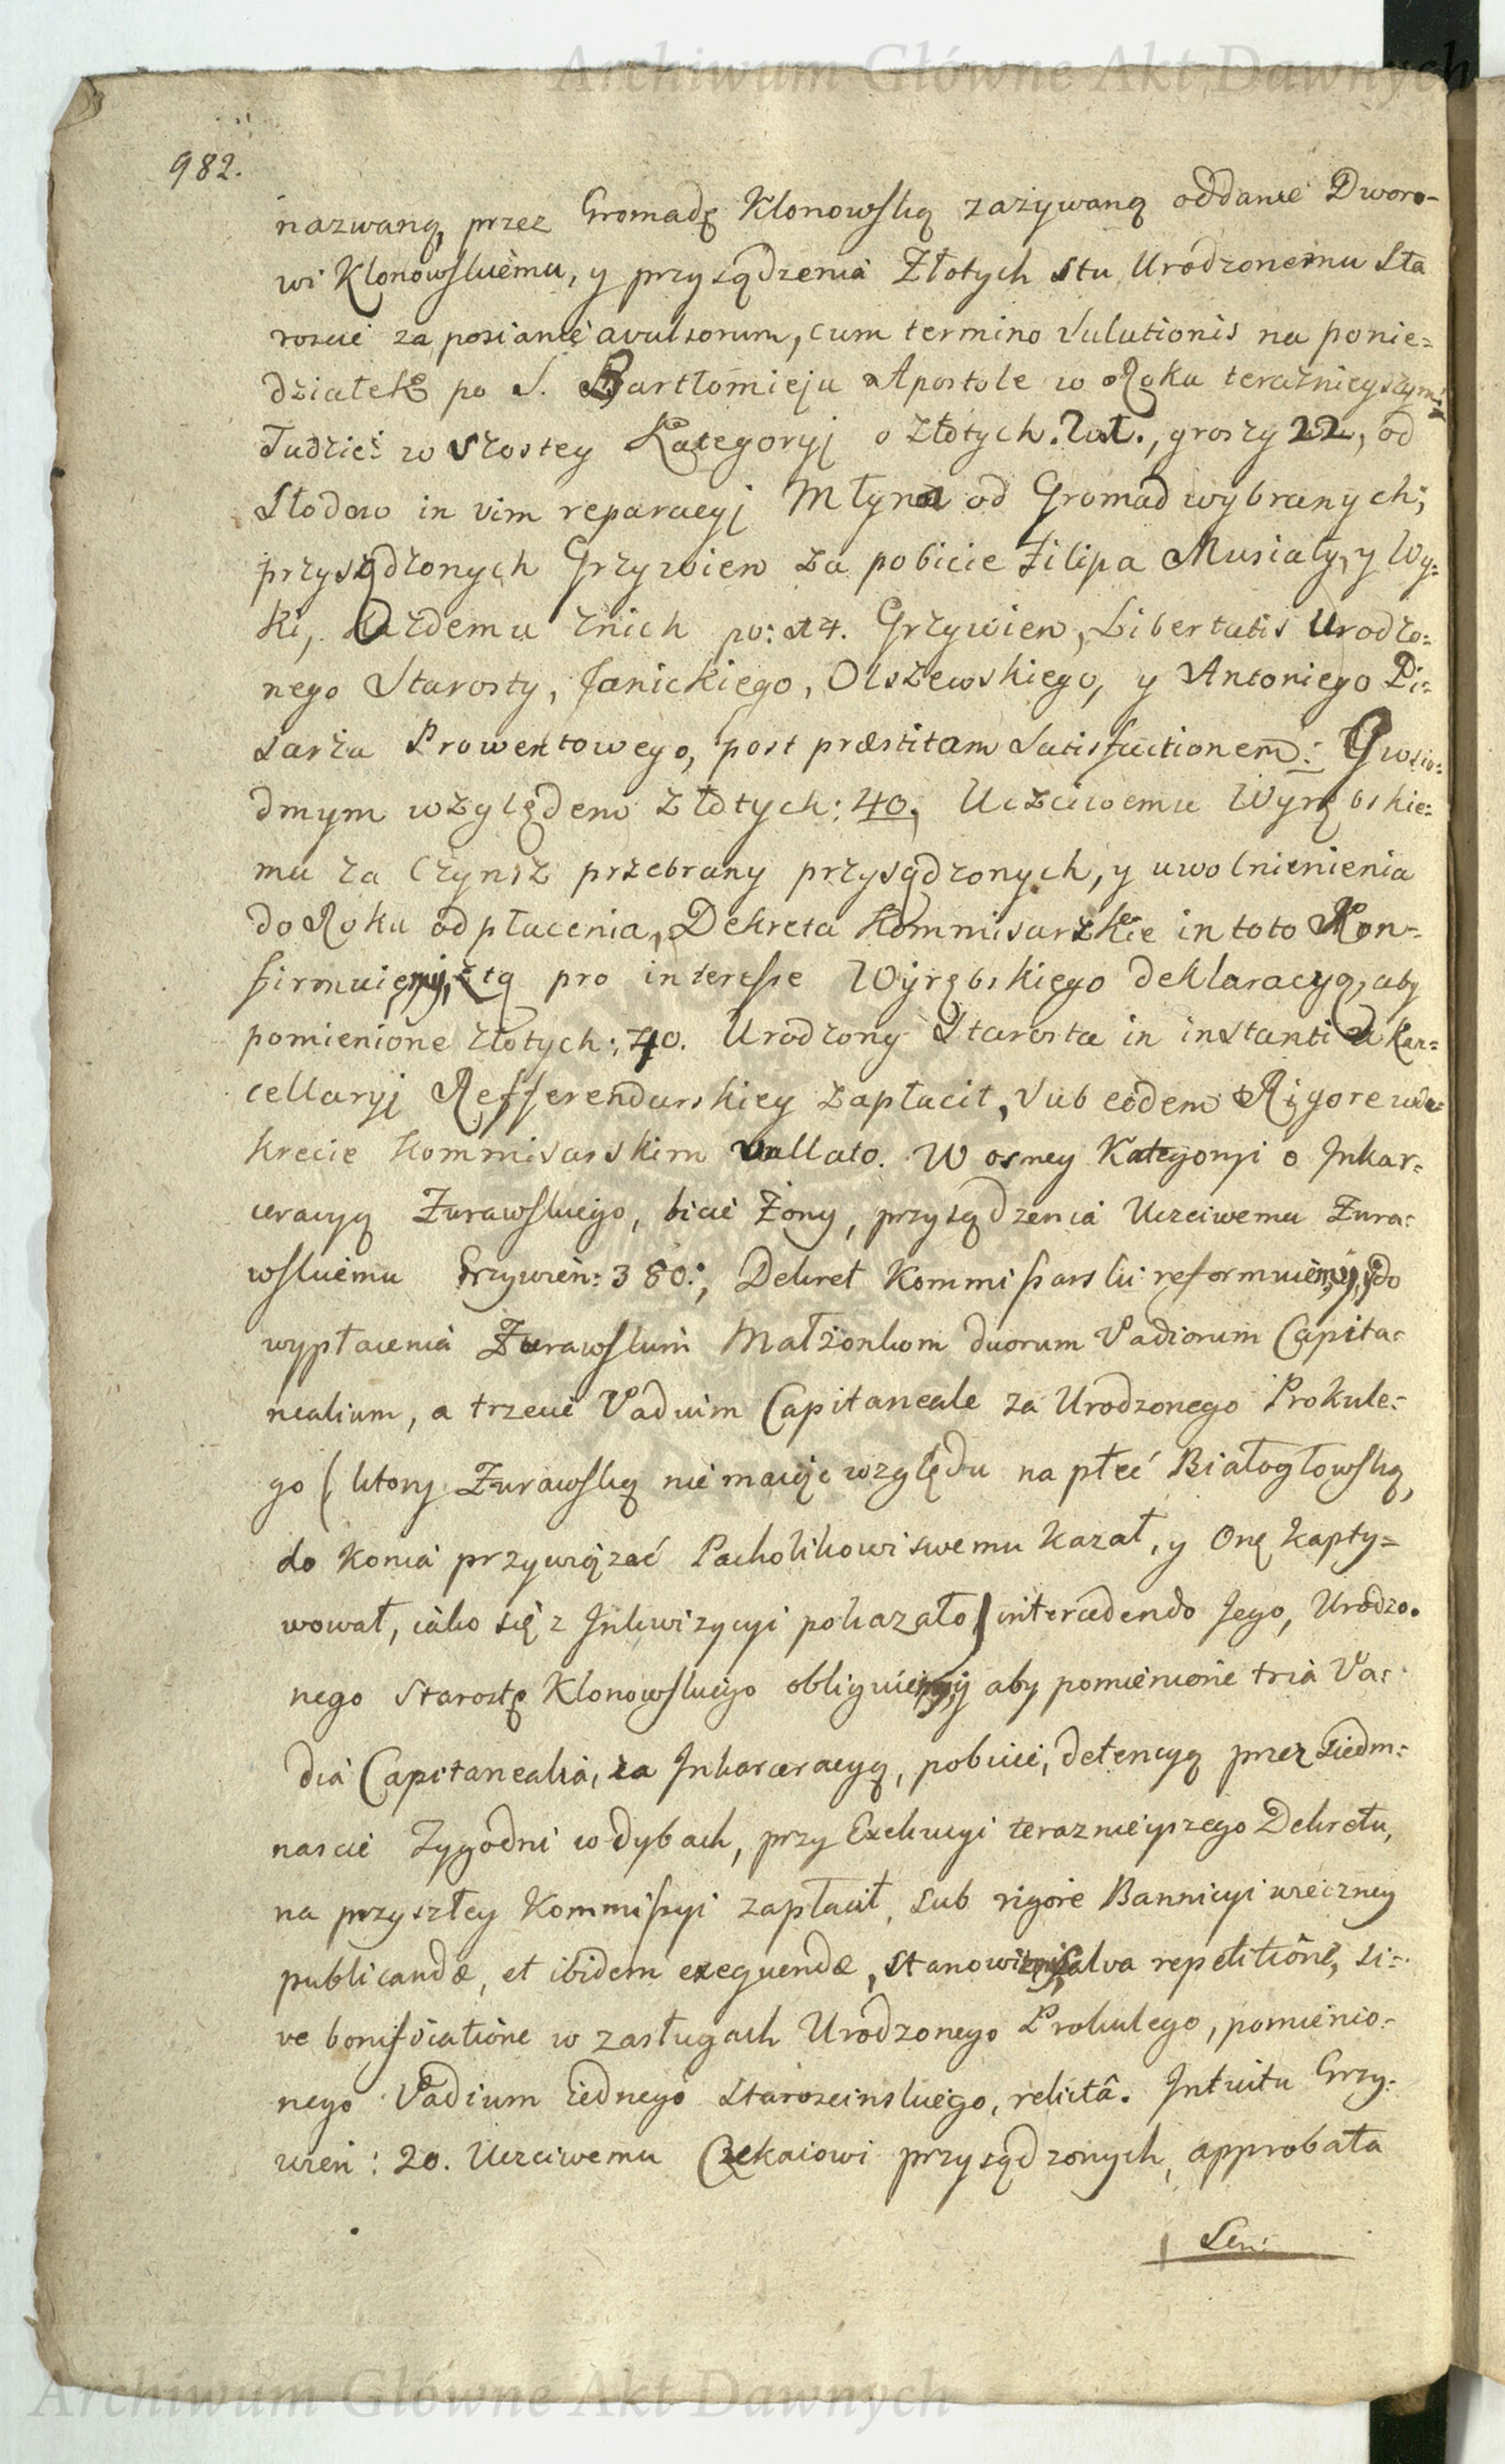 Archiwum Główne Akt Dawnych
982.
nazwaną, przez Gromadę Klonowską zażywaną oddanie Dworo-
wi Klonowskiemu, y przysądzenia Złotych Stu Urodzonemu Sta
roscie za posianie avulsorum, cum termino Sulutionis na ponie=
działek po S. Bartłomieju Apostole w Roku teraznieyszym;
Tudzież w Szostey Kategoryj o Złotych, groszy 22, od
Słodow in vim reparacyj Młyna od Gromad wybranych;
przysądzonych Grzywien za pobicie Filipa Musiały, y Wy=
ki, każdemu znich po: 14. Grzywien, Libertatis Urodzo=
nego Starosty, Janickiego, Olszewskiego, y Antoniego Pi=
sarza Prowentowego, post præstitam Satisfactionem: Y wsio=
dmym względem Złotych: 40, Uczciwemu Wyrębskie=
mu za Czynsz przebrany przysądzonych, y uwolnienienia
do Roku od płacenia, Dekreta Kommisarzkie in toto Kon=
firmuiemy, ztą pro interesse Wyrębskiego deklaracyą, aby
pomienione złotych: 40. Urodzony Starosta in instanti w Kan=
cellaryj Refferendarskiey zapłacił, Sub eodem Rigore wde=
krecie Kommisarskim vallato. W osmey Kategoryi o Inkar=
ceracyą Zurawskiego, bicie Żony, przysądzenia Uczciwemu Zura=
wskiemu Grzywien: 380:, Dekret Kommissarski reformuiemy, y do
wypłacenia Zurawskim Małżonkom duorum Vadiorum Capita=
nealium, a trzecie Vadium Capitaneale za Urodzonego Prokule=
go (ktory Zurawską nie maiąc względu na płeć Białogłowską,
do Konia przywiązać Pacholikowi swemu kazał, y Onę kapty=
wował, iako się z Inkwizycyi pokazało) intercedendo Jego, Urodzo=
nego Starostę Klonowskiego obliguiemy, aby pomienione tria Va=
dia Capitanealia, za Inkarceracyą, pobicie, detencyą przez siedm=
nascie Tygodni w dybach, przy Exekucyi teraznieyszego Dekretu,
na przyszłey Kommissyi zapłacił, Sub rigore Bannicyi wieczney
publicandæ, et ibidem exequendæ, stanowiemy, Salva repetitione, si=
ve bonificatione w zasługach Urodzonego Prokulego, pomienio=
nego Vadium iednego Staroscinskiego, relictâ. Intuitu Grzy=
wien: 20. Uczciwemu Czekaiowi przysądzonych, approbata
Sen:
Archiwum Główne Akt Dawnych